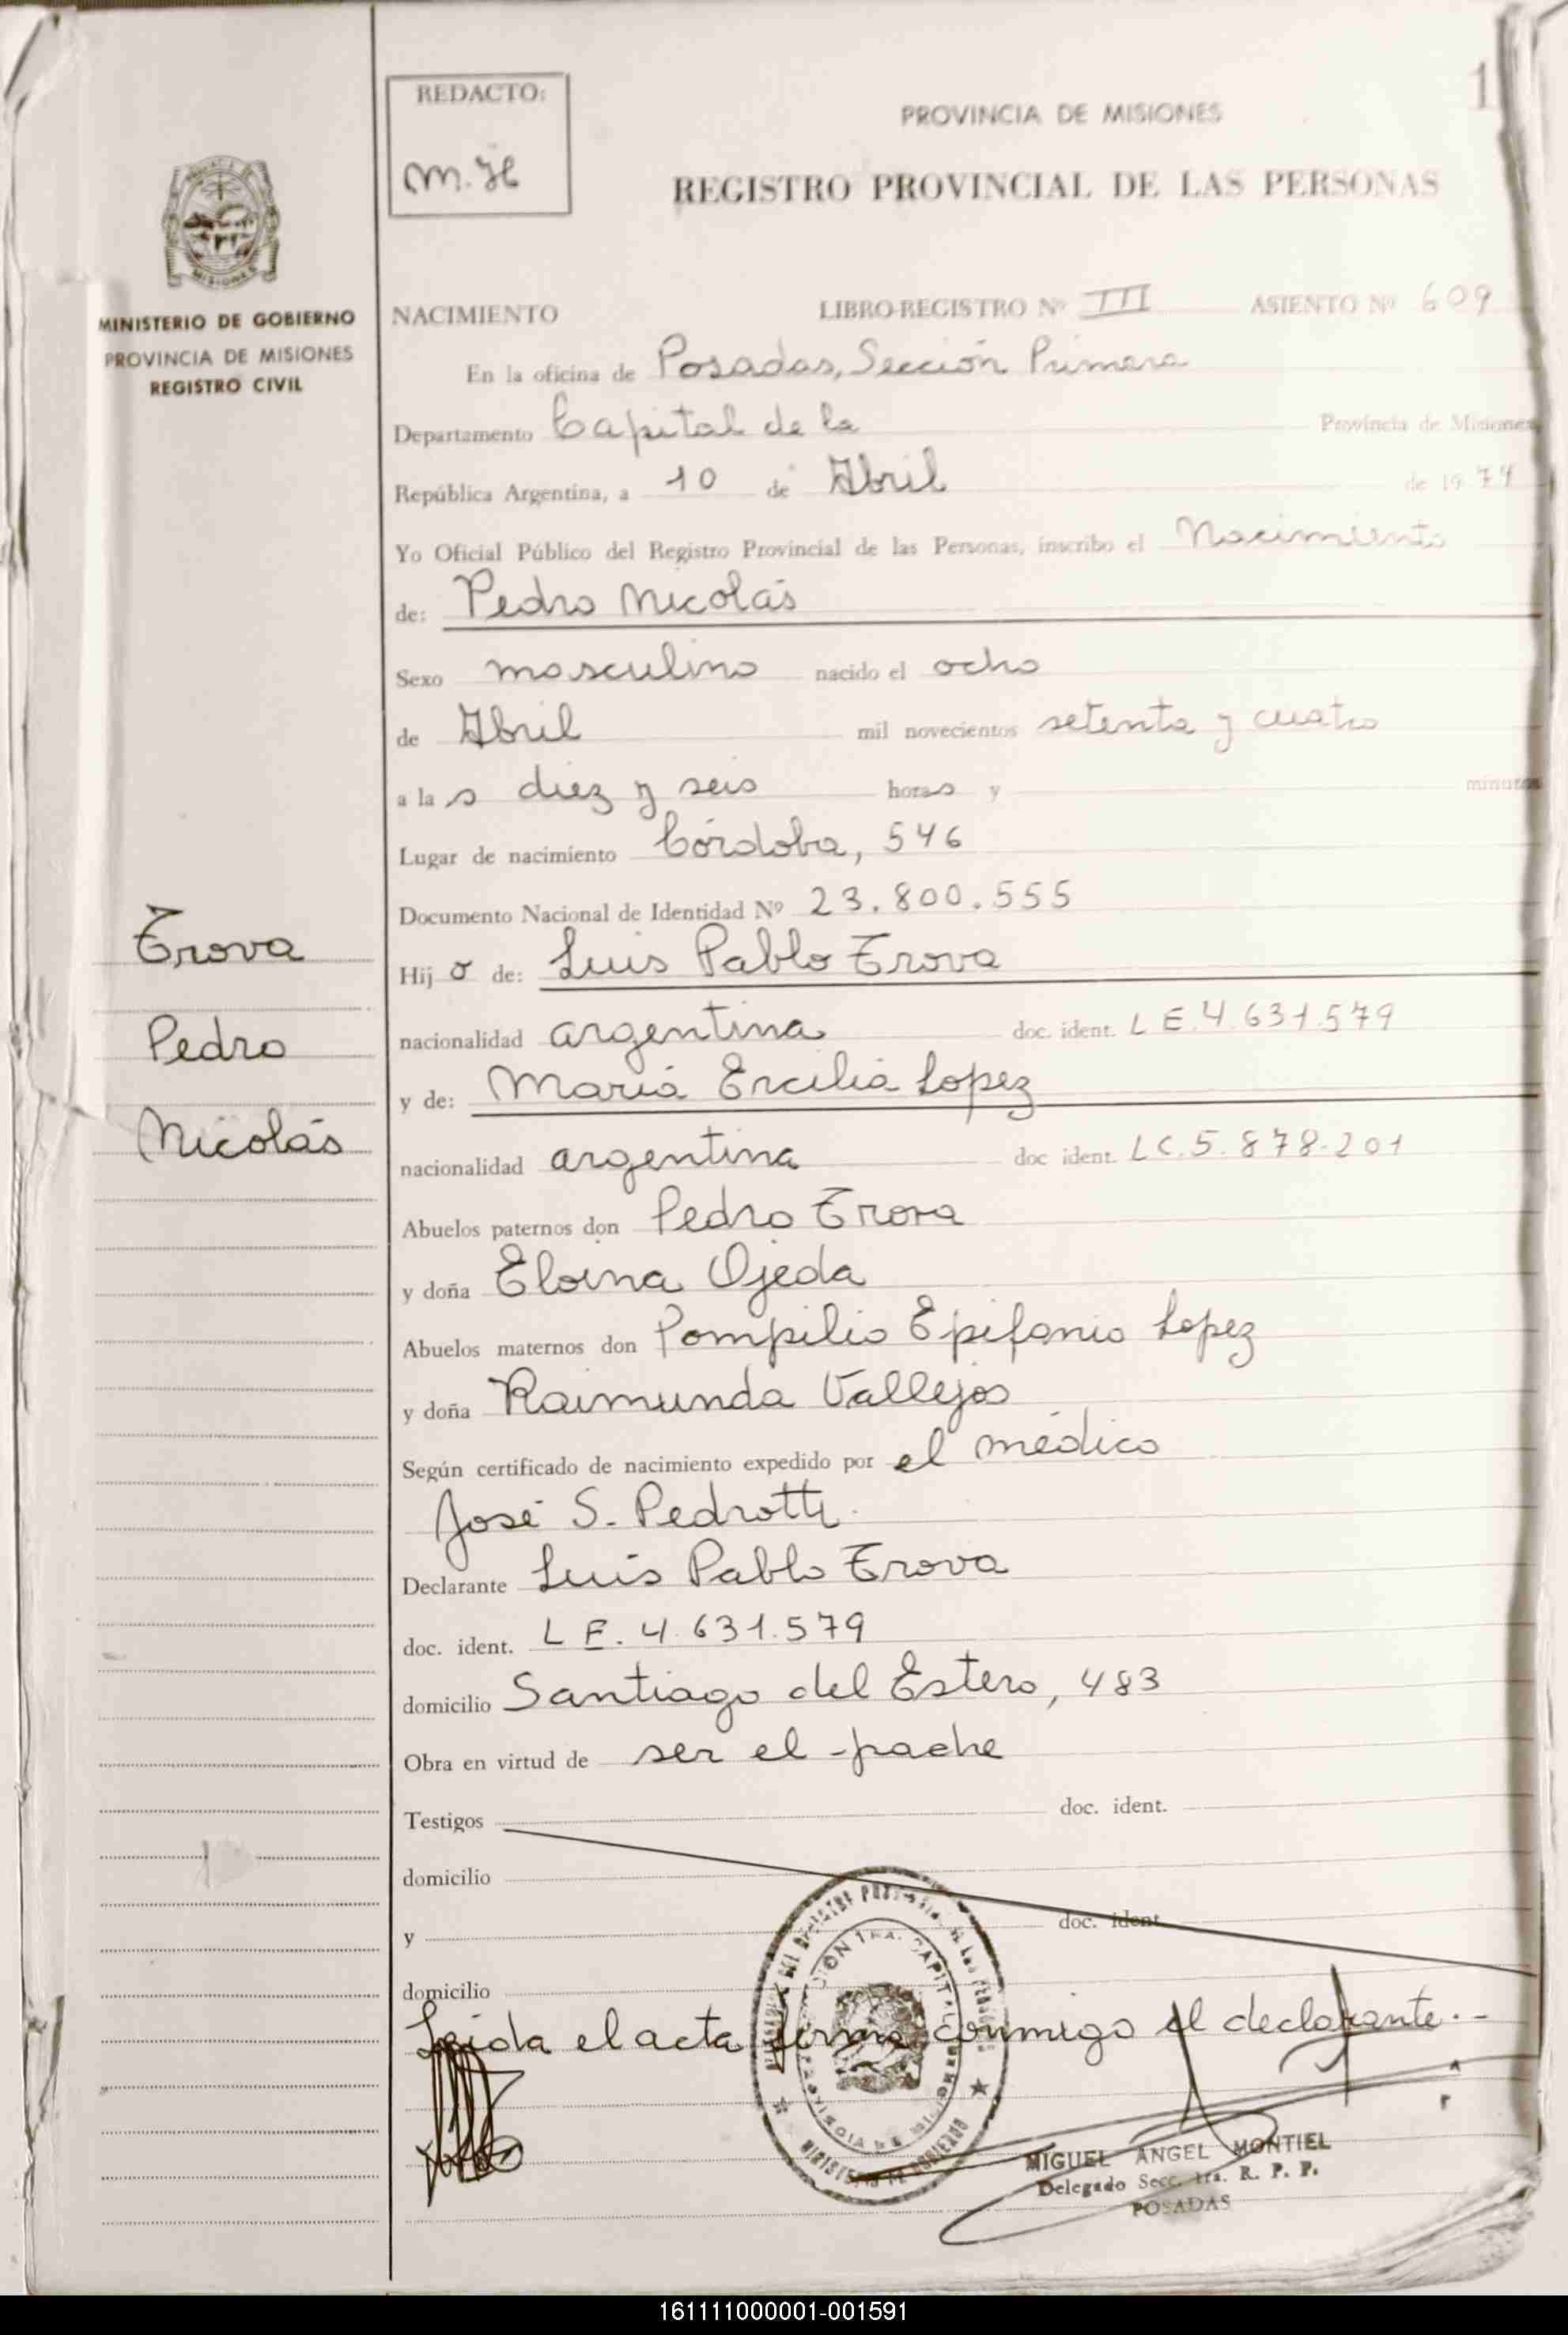 1
REDACTO:
M.H
PROVINCIA DE MISIONES
REGISTRO PROVINCIAL DE LAS PERSONAS
MISIONES
MINISTERIO DE GOBIERNO
PROVINCIA DE MISIONES
REGISTRO CIVIL
Trova
Pedro
Nicolás
NACIMIENTO LIBRO-REGISTRO Nº III ASIENTO Nº 609
En la oficina de Posadas, Sección Primera
Departamento Capital de la Provincia de Misiones
República Argentina, a 10 de Abril de 1974
Yo Oficial Público del Registro Provincial de las Personas, inscribo el Nacimiento
de: Pedro Nicolás
Sexo masculino nacido el ocho
de Abril mil novecientos setenta y cuatro
a las diez y seis horas y minutos
Lugar de nacimiento Córdoba, 546
Documento Nacional de Identidad Nº 23.800.555
Hijo de: Luis Pablo Trova
nacionalidad argentina doc. ident. L E. 4.631.579
y de: María Ercilia Lopez
nacionalidad argentina doc ident. L C. 5.878.201
Abuelos paternos don Pedro Trova
y doña Eloina Ojeda
Abuelos maternos don Pompilio Epifanio Lopez
y doña Raimunda Vallejos
Según certificado de nacimiento expedido por el médico
José S. Pedrotti.
Declarante Luis Pablo Trova
doc. ident. L E. 4.631.579
domicilio Santiago del Estero, 483
Obra en virtud de ser el padre
Testigos doc. ident.
domicilio
y doc. ident.
domicilio
Leida el acta firma conmigo el declarante.-
MIGUEL ANGEL MONTIEL
Delegado Secc. 1ra. R. P. P.
POSADAS
161111000001-001591